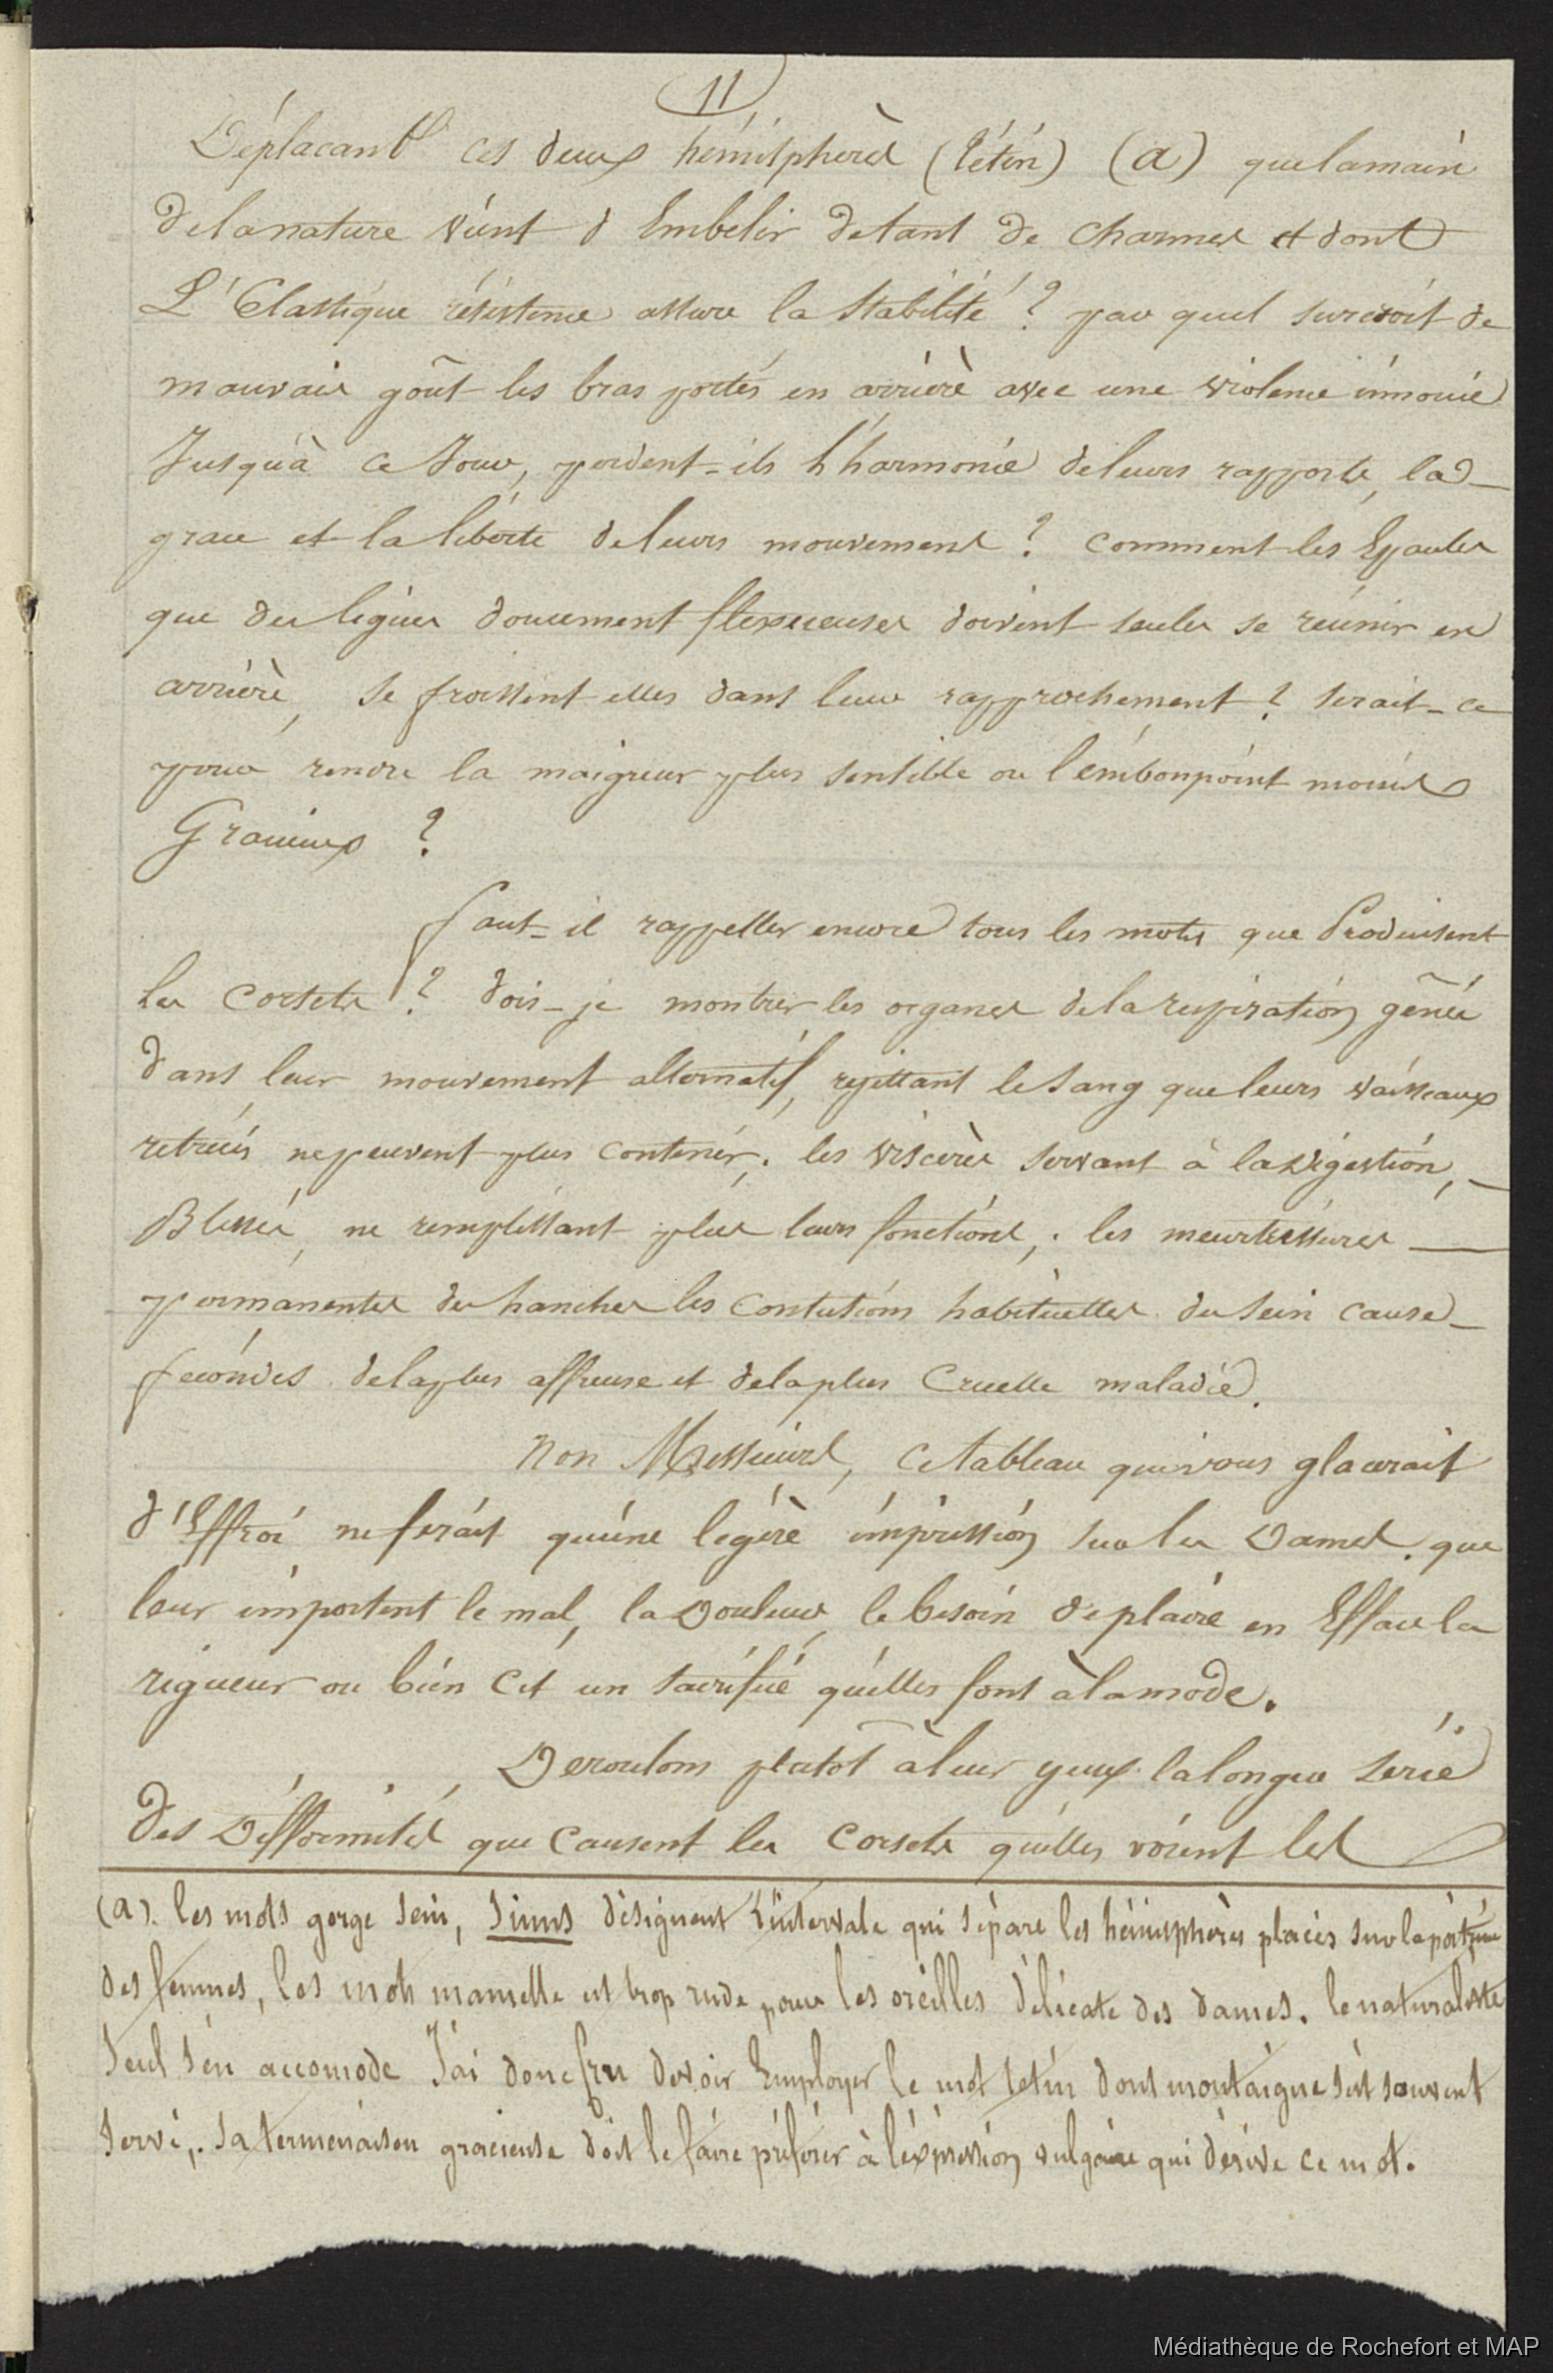 11
Déplacant ces deux hémisphères (tétin) (a) que la main
de la nature vient d Embelir de tant de charmes et dont
L'Elastique résistence assure la stabilité ? par quel surcroit de
mauvais goût les bras portés en arrièrè avec une violence innouie
Jusqu'à ce Jour, perdent-ils l'harmonie de leurs rapports, la
grace et la liberte de leurs mouvements ? comment les Epaules
que des lignes doucement flexueuses doivent seules se réunir en
arrièrè, se froissent elles dans leur rapprochement ? serait-ce
pour rendre la maigreur plus sensible ou l'embonpoint moins
Gracieux ?
faut-il rappeller encore tous les mots que Produisent
les corsets ? dois-je montrer les organes de la respiration gênés
dans leur mouvement alternatif, rejettant le sang que leurs vaisseaux
retrecis ne peuvent plus contenir; les viscères servant à la digestion,
Blessés, ne remplissant plus leurs fonctions; les meurtrissures
permanentes des hanches les contusions habituelles du sein cause
fecondes de la plus affreuse et de la plus Cruelle maladie.
Non Messieurs, ce tableau qui vous glacerait
d'Effroi ne ferait qu'une legère impression sur les Dames. que
leur importent le mal, la Douleur, le besoin de plaire en Efface la
rigueur ou bien c'est un sacrifice qu'elles font à la mode.
Deroulons plutot à leur yeux la longue serie
des Difformités que causent les corsets qu'elles voient les
(a). les mots gorge sein, sinus désignent l'intervale qui sépare les hémisphères placés sur la poitrine
des femmes, les mots mamelle est trop rude pour les oreilles délicate des dames. le naturaliste
seul s'en accomode J'ai donc cru devoir Employer le mot tetin dont montaigne s'est souvent
servi;. sa termenaison gracieuse doit le faire préférer à l'éxpression vulgaire qui dérive ce mot.
Médiathèque de Rochefort et MAP